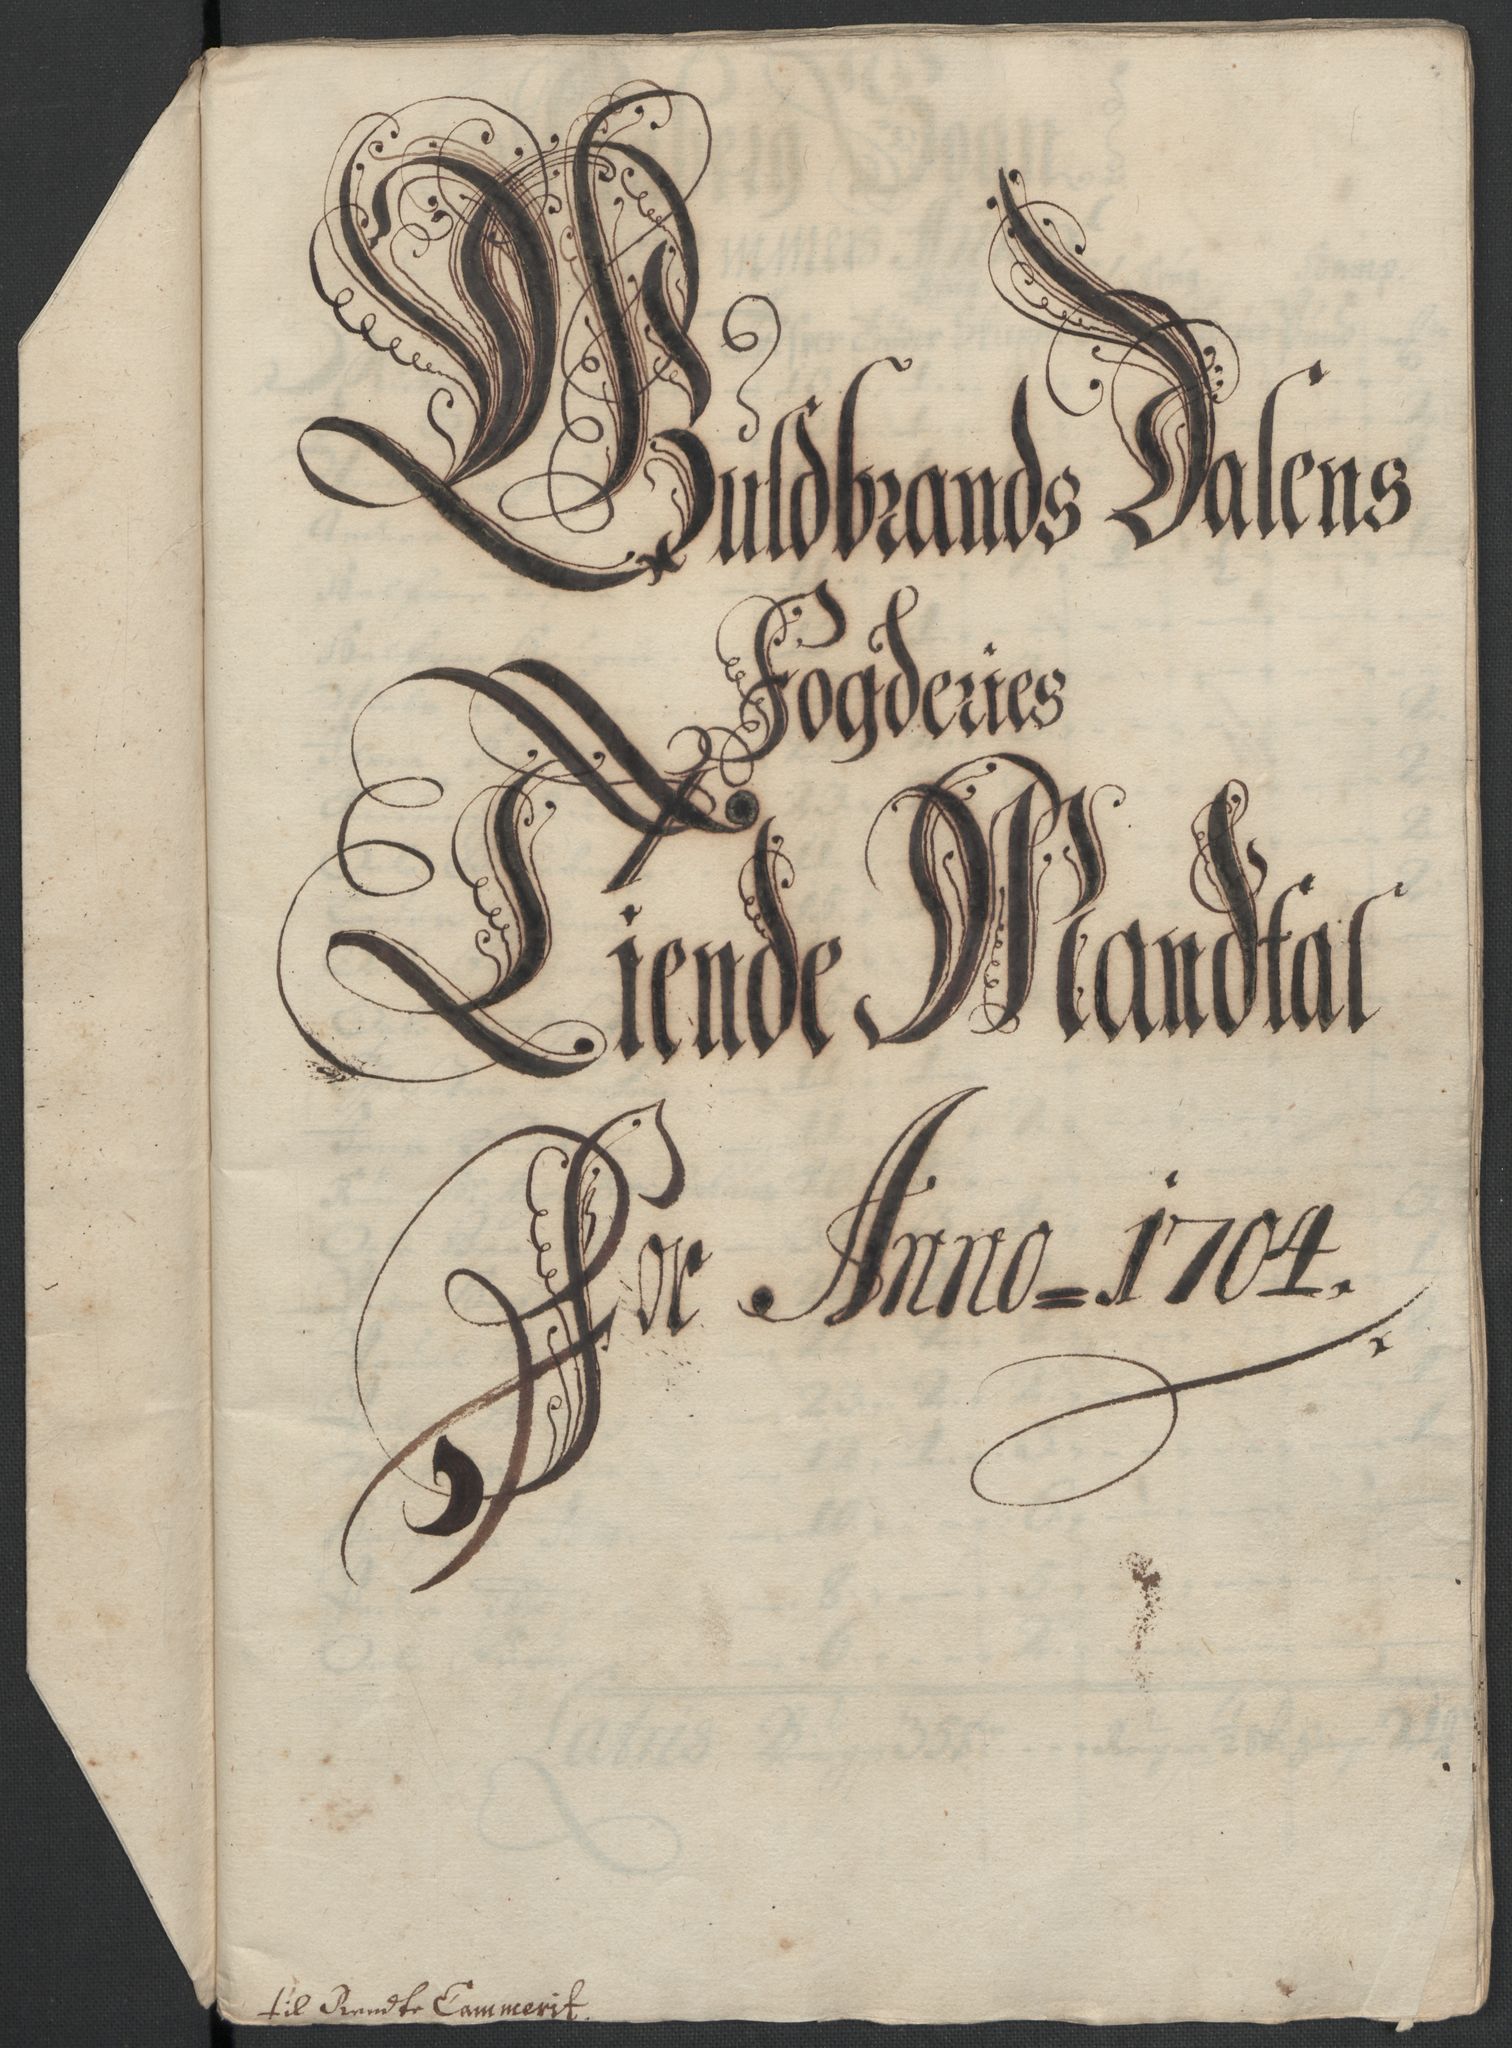 Guldbrands Dalens
Fogderies
Tiende Mandtal
For Anno=1704.
til Rendte Cammerit.